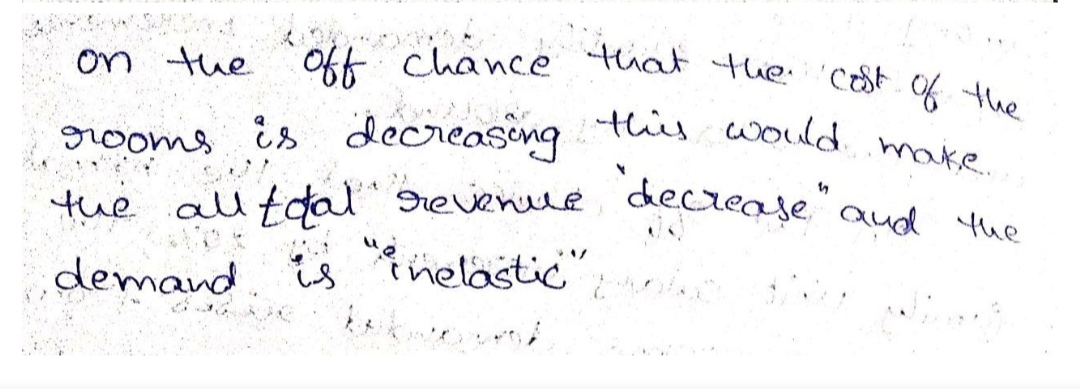 on the off chance that the cost of the
rooms is decreasing this would make
the all total revenue "decrease" and the
demand is "inelastic"